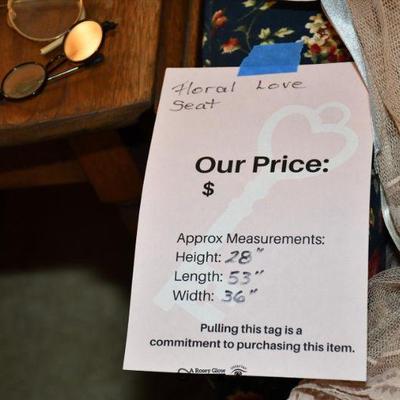 Floral Love
Seat
Our Price:
$
Approx Measurements:
Height: 28"
Length: 53"
Width: 36"
Pulling this tag is a
commitment to purchasing this item.
A Rosey Glow